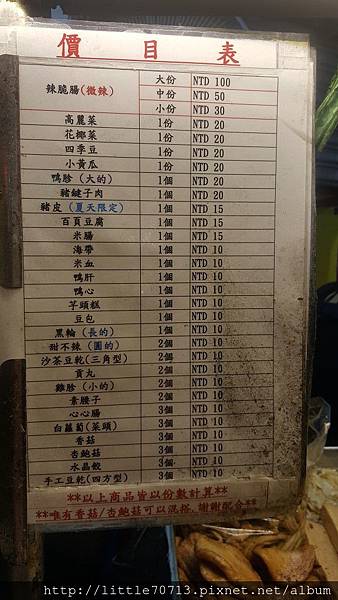 價目表
辣脆腸(微辣) 大份 NTD 100
中份 NTD 50
小份 NTD 30
高麗菜 1份 NTD 20
花椰菜 1份 NTD 20
四季豆 1份 NTD 20
小黃瓜 1份 NTD 20
鴨胗(大的) 1個 NTD 20
豬腱子肉 1個 NTD 20
豬皮(夏天限定) 1個 NTD 15
百頁豆腐 1個 NTD 15
米腸 1個 NTD 15
海帶 1個 NTD 10
米血 1個 NTD 10
鴨肝 1個 NTD 10
鴨心 1個 NTD 10
芋頭糕 1個 NTD 10
豆包 1個 NTD 10
黑輪(長的) 1個 NTD 10
甜不辣(圓的) 2個 NTD 10
沙茶豆乾(三角型) 2個 NTD 10
貢丸 2個 NTD 10
雞胗(小的) 2個 NTD 10
素腰子 2個 NTD 10
心心腸 3個 NTD 10
白蘿蔔(菜頭) 3個 NTD 10
香菇 3個 NTD 10
杏鮑菇 3個 NTD 10
水晶餃 3個 NTD 10
手工豆乾(四方型) 3個 NTD 10
**以上商品皆以份數計算**
**唯有香菇/杏鮑菇可以混搭,謝謝配合**
http://little70713.pixnet.net/album